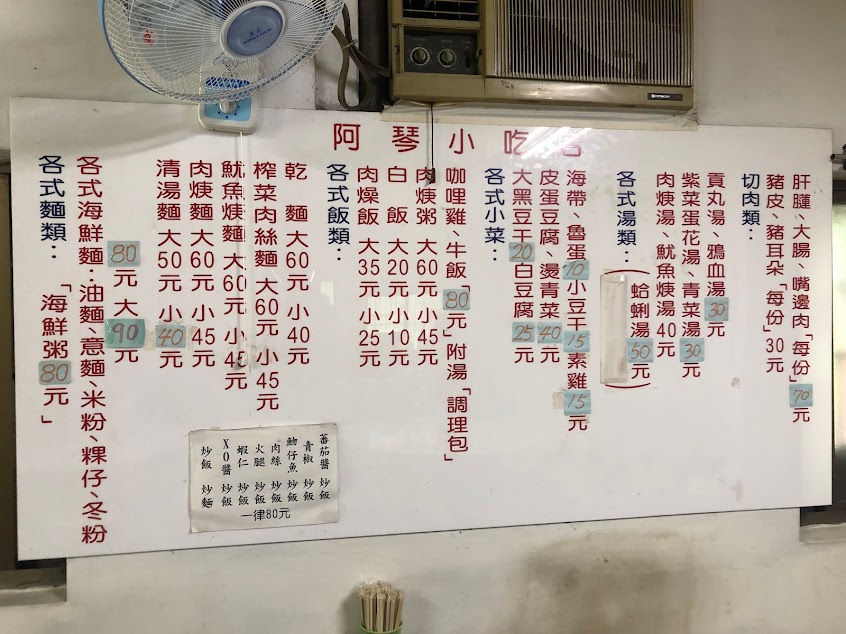 阿琴小吃店
各式麵類：
「海鮮粥80元」
各式海鮮麵：油麵、意麵、米粉、粿仔、冬粉
80元 大90元
清湯麵 大50元 小40元
肉焿麵 大60元 小45元
魷魚焿麵 大60元 小45元
榨菜肉絲麵 大60元 小45元
乾麵 大60元 小40元
各式飯類：
肉燥飯 大35元 小25元
白飯 大20元 小10元
肉焿粥 大60元 小45元
咖哩雞、牛飯「80元」附湯「調理包」
各式小菜：
大黑豆干20白豆腐25元
皮蛋豆腐、燙青菜40元
海帶、魯蛋10小豆干15素雞15元
各式湯類：
(蛤蜊湯50元)
肉焿湯、魷魚焿湯40元
紫菜蛋花湯、青菜湯30元
貢丸湯、鴉血湯30元
切肉類：
豬皮、豬耳朵「每份」30元
肝、大腸、嘴邊肉「每份」70元
蕃茄醬 炒飯
青椒 炒飯
魩仔魚 炒飯
肉絲 炒飯
火腿 炒飯
蝦仁 炒飯
XO醬 炒飯
炒飯 炒麵
一律80元